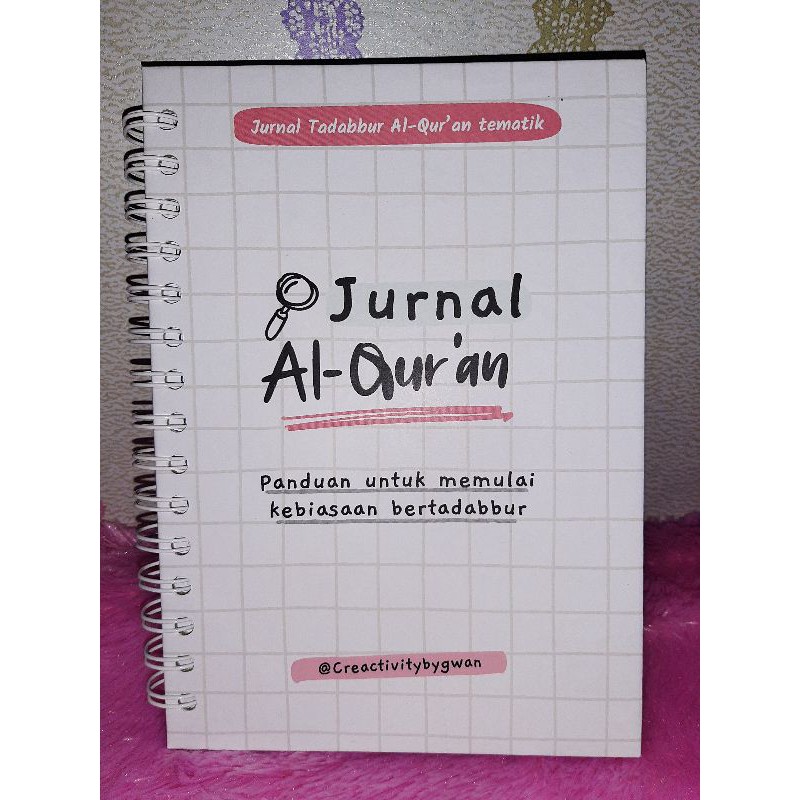 Jurnal Tadabbur Al-Qur'an tematik
Jurnal
Al-Qur'an
Panduan untuk memulai
kebiasaan bertadabbur
@Creactivitybygwan